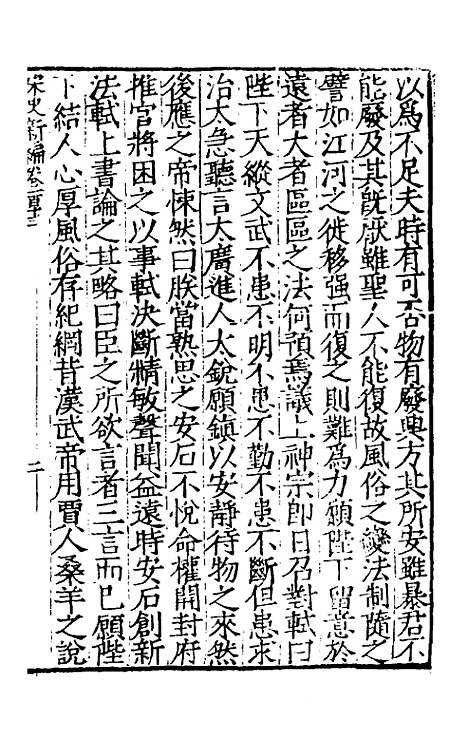 以爲不足夫時有可否物有廢興方其所安雖暴君不
能廢及其旣厭雖聖人不能復故風俗之變法制隨之
譬如江河之徙移強而復之則難爲力願陛下留意於
遠者大者區區之法何預焉議上神宗即日召對軾曰
陛下天縱文武不患不明不患不勤不患不斷但患求
治太急聽言太廣進人太銳願鎮以安靜待物之來然
後應之帝悚然曰朕當熟思之安石不悅命權開封府
推官將困之以事軾決斷精敏聲聞益遠時安石創新
法軾上書論之其略曰臣之所欲言者三言而已願陛
下結人心厚風俗存紀綱昔漢武帝用賈人桑羊之說
宋史新編卷一百十三
二